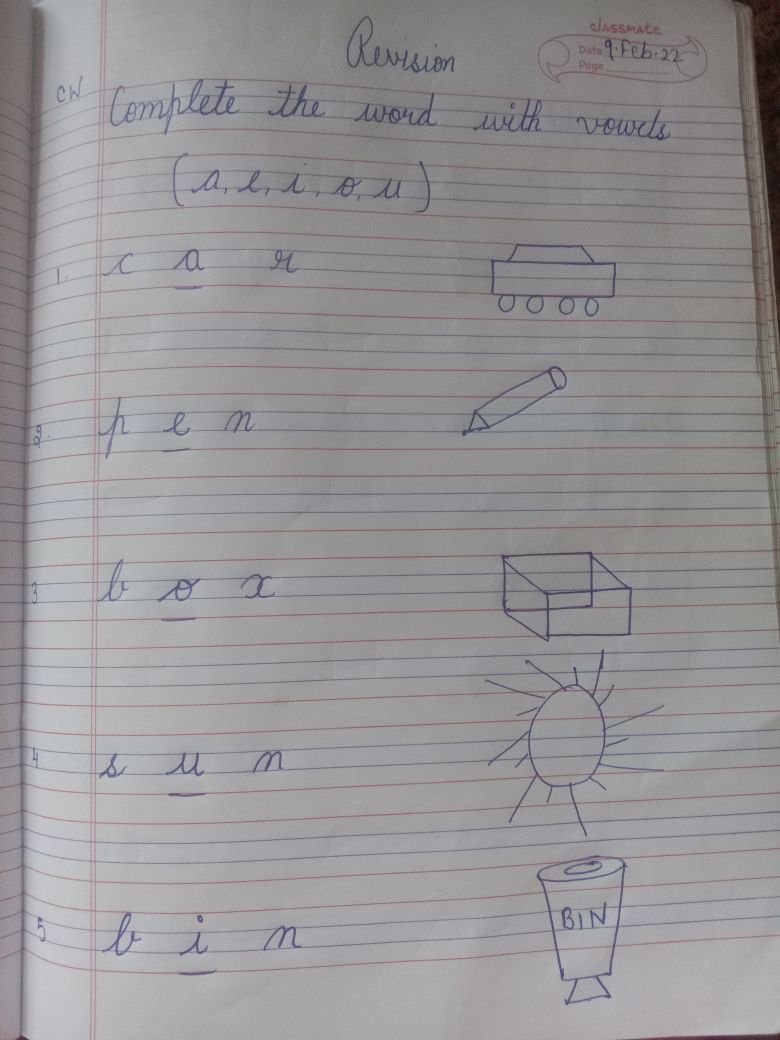 classmate
Date 9.Feb.22
Page
Revision
CW
Complete the word with vowels
(a, e, i, o, u)
1. c a r
2. p e n
3 b o x
4 s u n
5 b i n
BIN